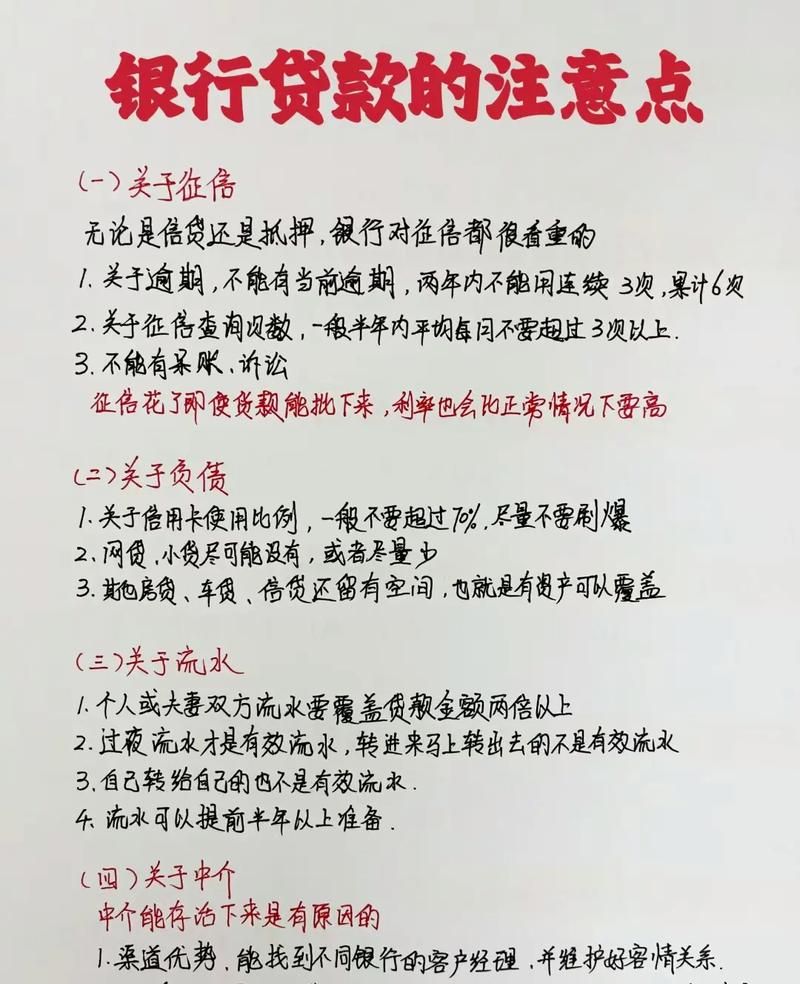 银行贷款的注意点
(一)关于征信
无论是信贷还是抵押,银行对征信都很看重的
1.关于逾期,不能有当前逾期,两年内不能用连续3次,累计6次
2.关于征信查询次数,一般半年内平均每月不要超过3次以上.
3.不能有呆账、诉讼
征信花了即使贷款能批下来,利率也会比正常情况下要高
(二)关于负债
1.关于信用卡使用比例,一般不要超过70%,尽量不要刷爆
2.网贷、小贷尽可能没有,或者尽量少
3.其他房贷、车贷、信贷还留有空间,也就是有资产可以覆盖
(三)关于流水
1.个人或夫妻双方流水要覆盖贷款金额两倍以上
2.过夜流水才是有效流水,转进来马上转出去的不是有效流水
3.自己转给自己的也不是有效流水.
4.流水可以提前半年以上准备.
(四)关于中介
中介能存活下来是有原因的
1.渠道优势、能找到不同银行的客户经理,并维护好客情关系.